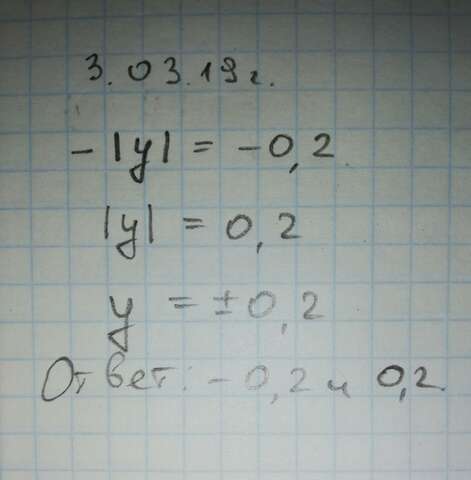 3.03.19г.
-|y| = -0,2
|y| = 0,2
y = ±0,2
Ответ: -0,2 и 0,2.